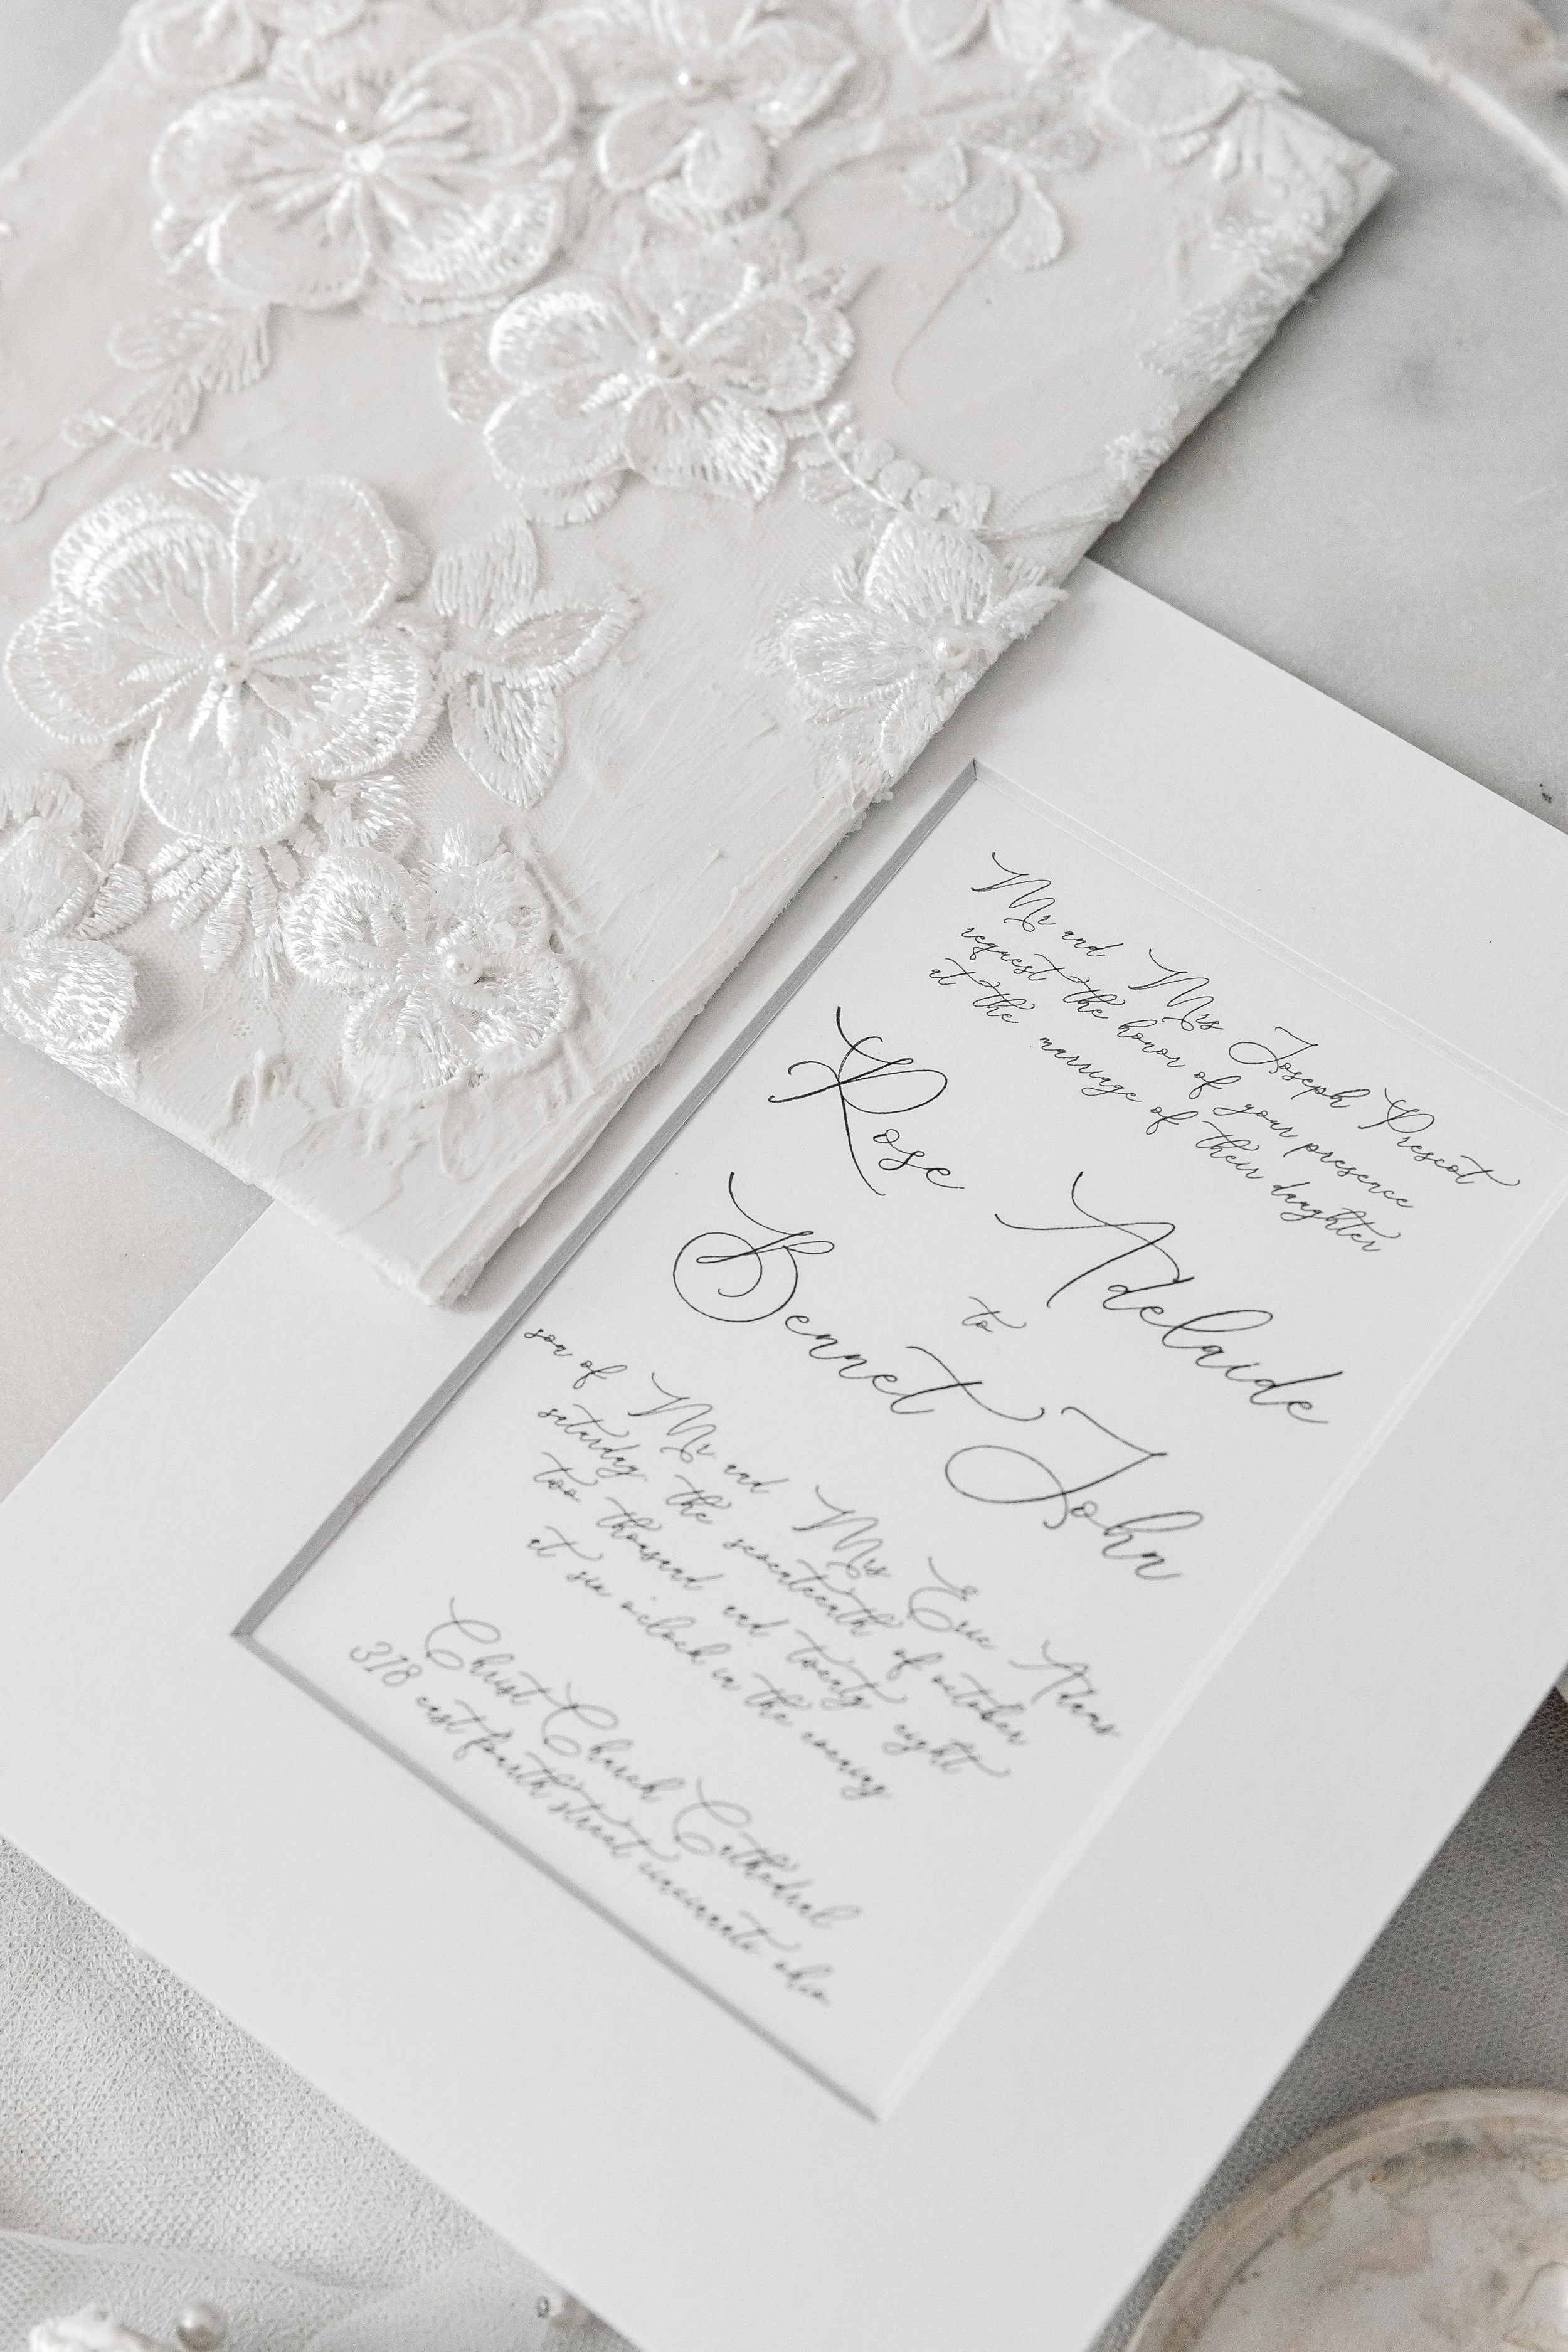 Mr and Mrs Joseph Prescot
request the honor of your presence
at the marriage of their daughter
Rose Adelaide
to
Bennet John
son of Mr and Mrs Eric Adams
saturday the seventeenth of october
two thousand and twenty eight
at six o'clock in the evening
Christ Church Cathedral
318 east fourth street cincinnati ohio